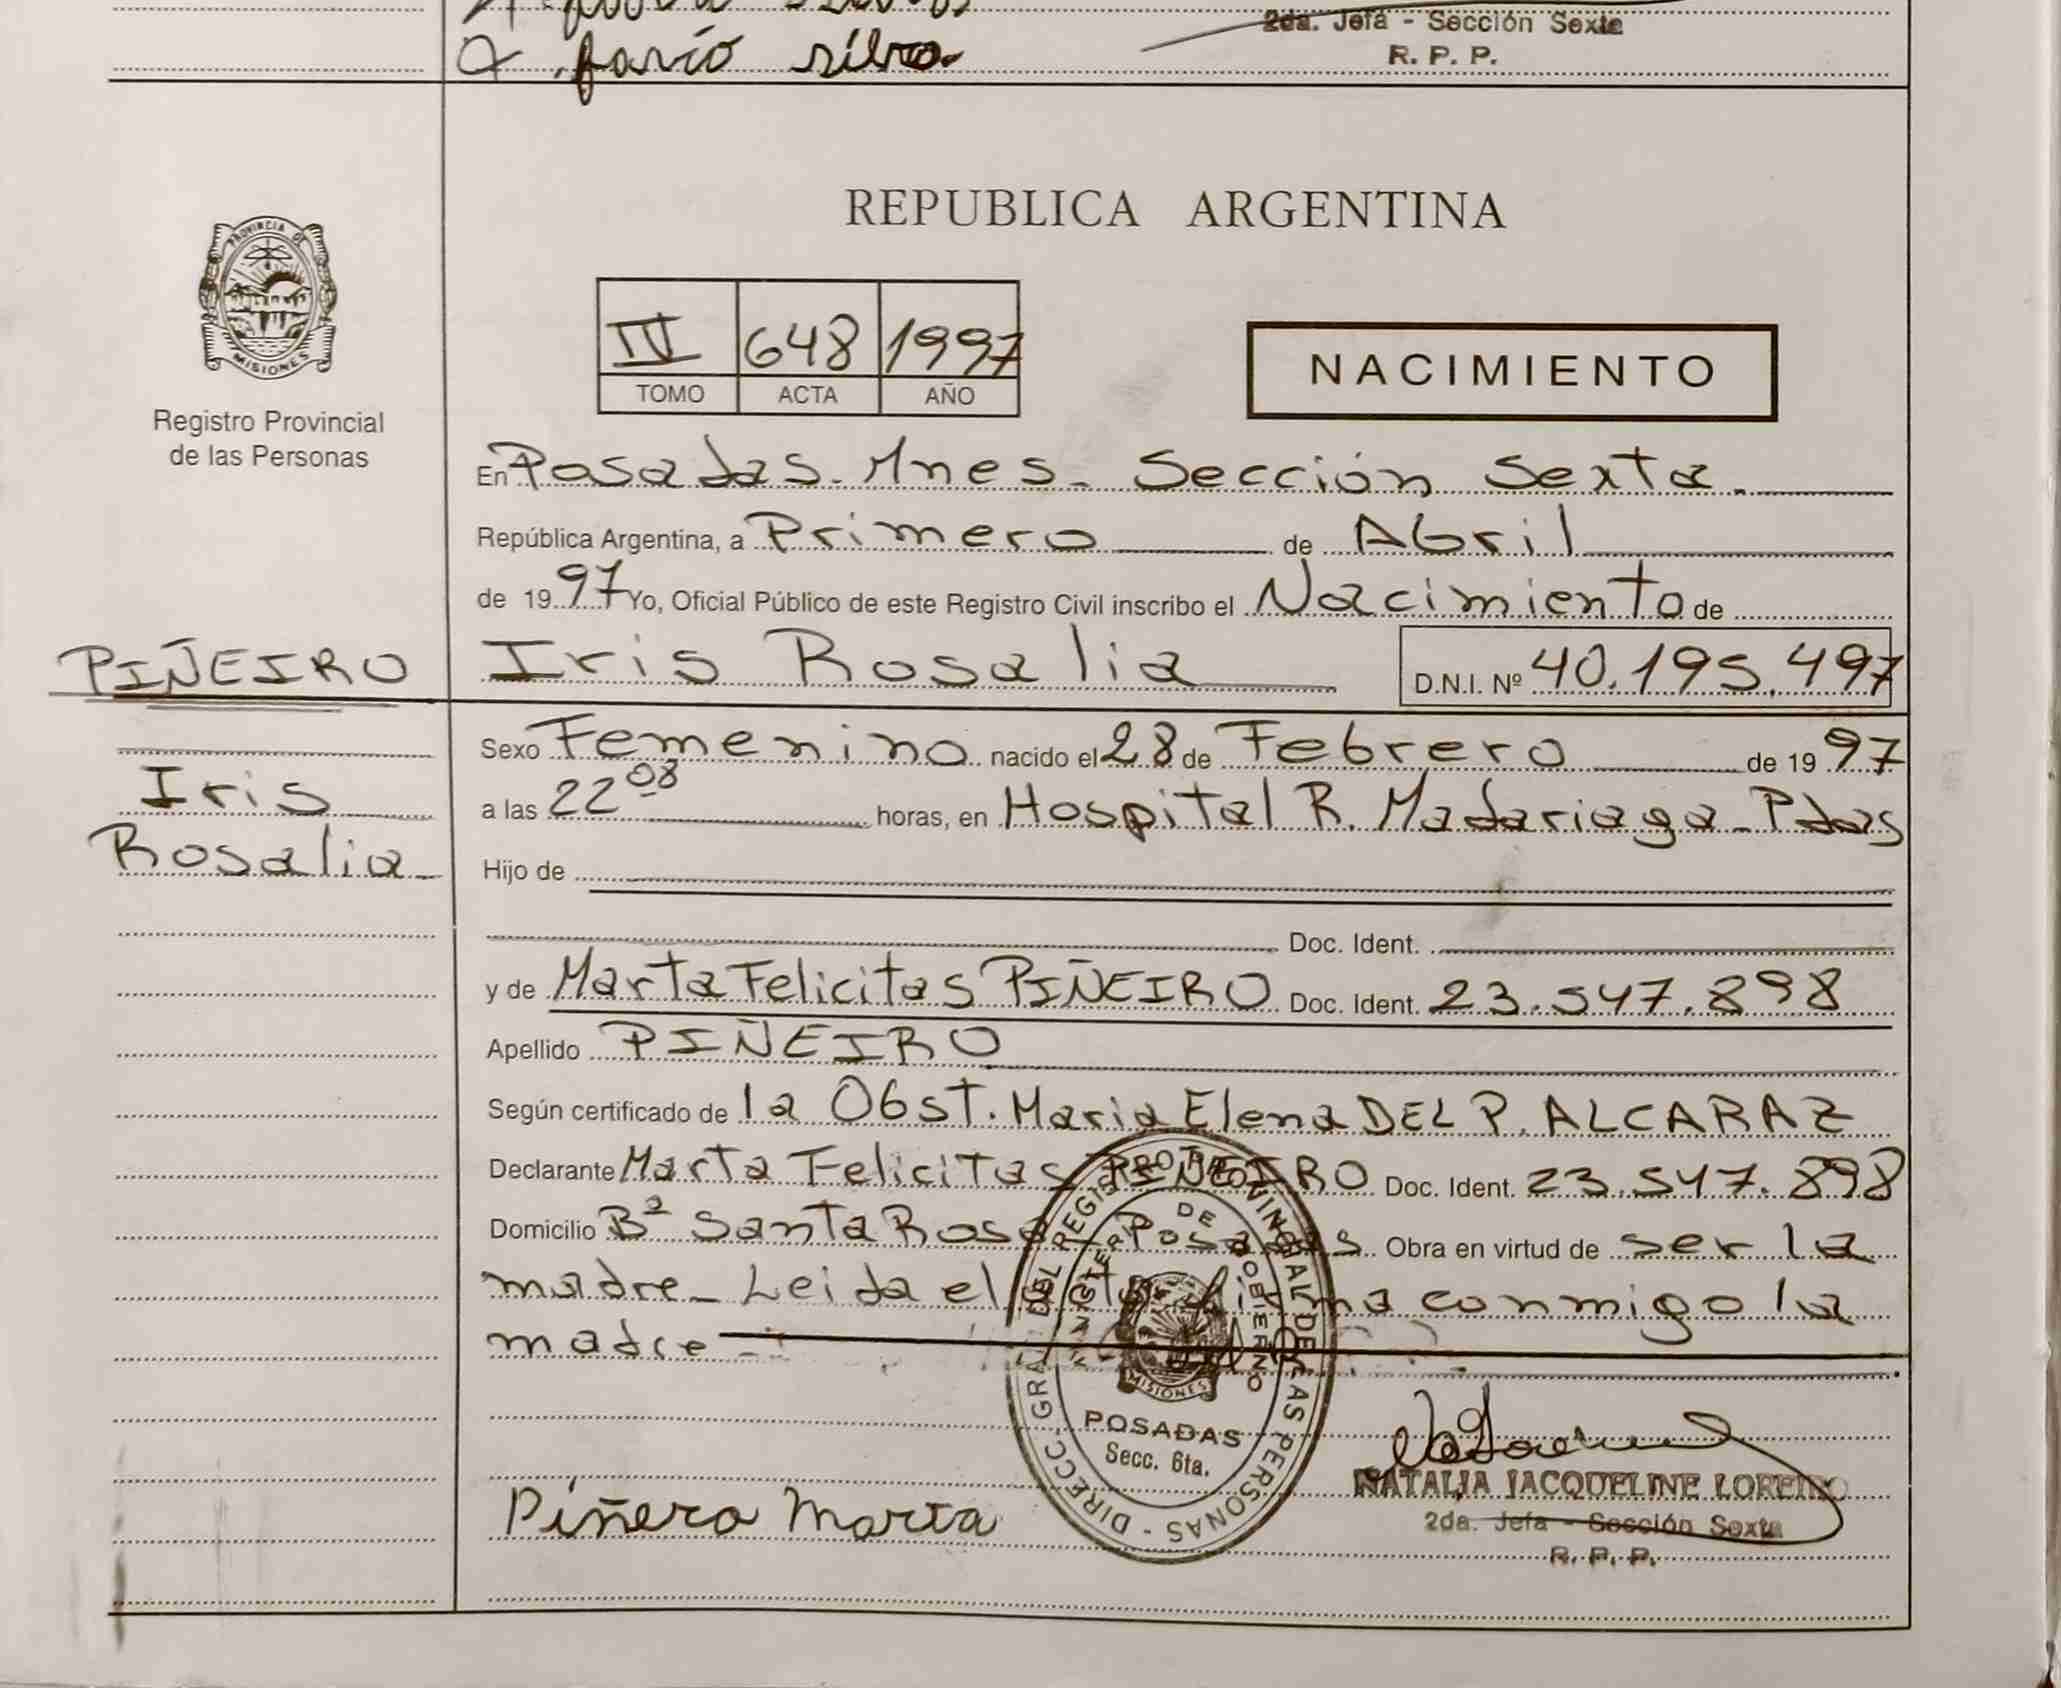 favio silva
2da. Jefa - Sección Sexta
R. P. P.
REPUBLICA ARGENTINA
PROVINCIA DE
MISIONES
Registro Provincial
de las Personas
IV 648 1997
TOMO ACTA AÑO
NACIMIENTO
En Posadas. Mnes. Sección Sexta.
República Argentina, a Primero de Abril
de 1997 Yo, Oficial Público de este Registro Civil inscribo el Nacimiento de
PIÑEIRO Iris Rosalia D.N.I. Nº 40.195.497
Sexo Femenino nacido el 28 de Febrero de 1997
Iris
a las 22 08 horas, en Hospital R. Madariaga - Pdas
Rosalia
Hijo de
Doc. Ident.
y de Marta Felicitas PIÑEIRO Doc. Ident. 23.547.898
Apellido PIÑEIRO
Según certificado de la Obst. Maria Elena DEL P. ALCARAZ
Declarante Marta Felicitas PIÑEIRO Doc. Ident. 23.547.898
Domicilio Bº Santa Rosa - Posadas Obra en virtud de ser la
madre - Leida el acta firma conmigo la
madre
DIRECC. GRAL. DEL REGISTRO PROVINCIAL DE LAS PERSONAS
MINISTERIO DE GOBIERNO
MISIONES
POSADAS
Secc. 6ta.
Piñero Marta
NATALIA JACQUELINE LOREIRO
2da. Jefa - Sección Sexta
R. P. P.